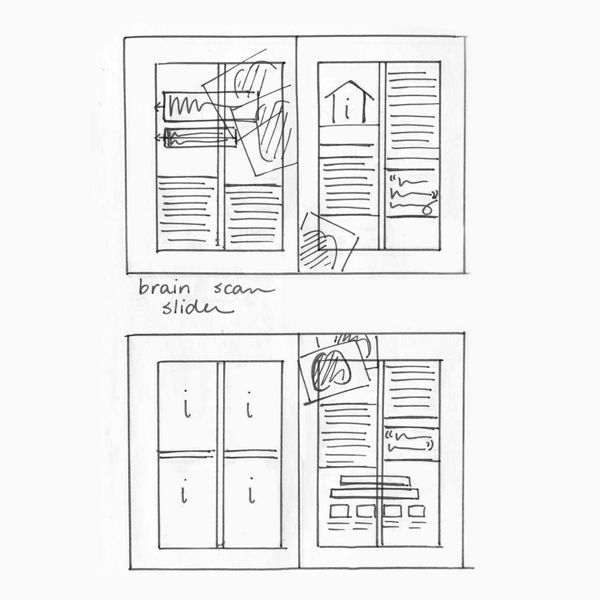 i
brain scan
slider
i i
i i